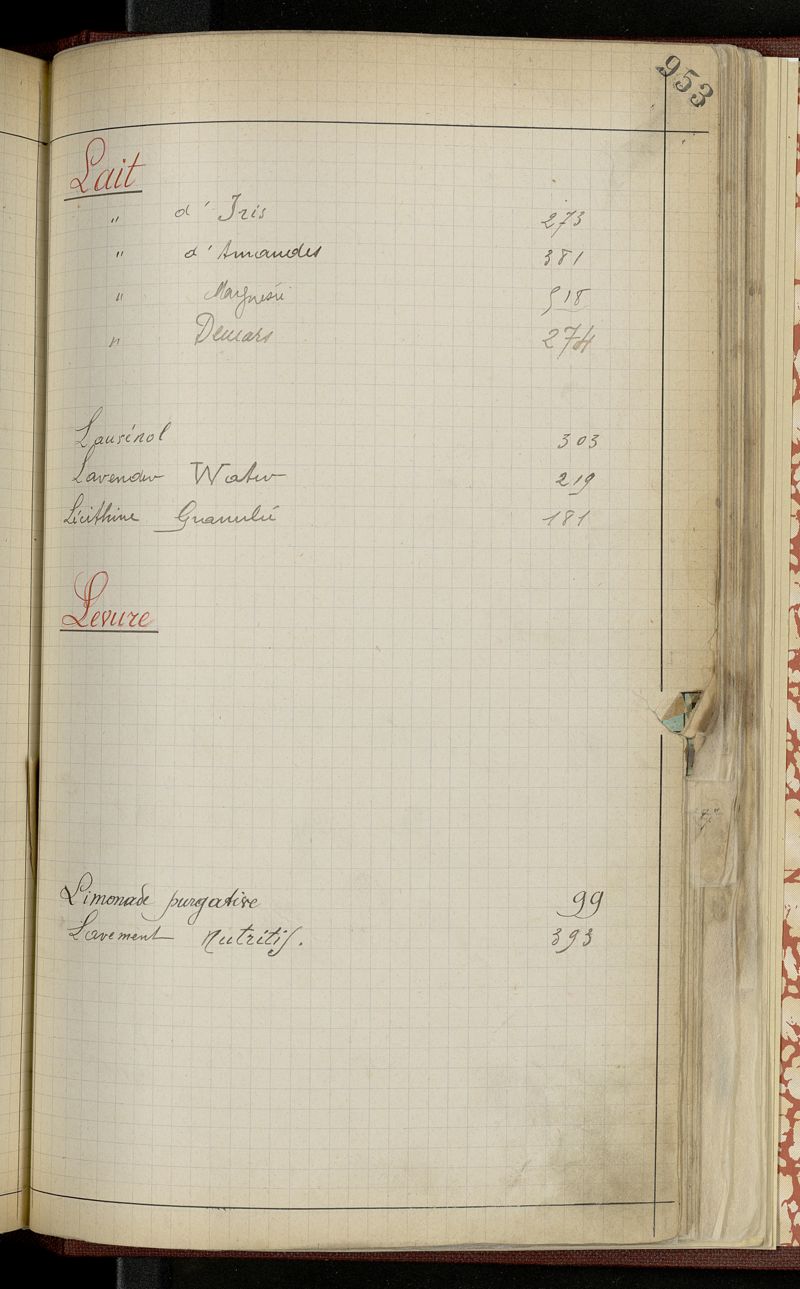 953
Lait
" d'Iris 273
" d'Amandes 381
" Magnésie 518
" Demars 274
Lausénol 303
Lavender Water 219
Lécithine Granulée 181
Levure
Limonade purgative 99
Lavement Nutritif. 393